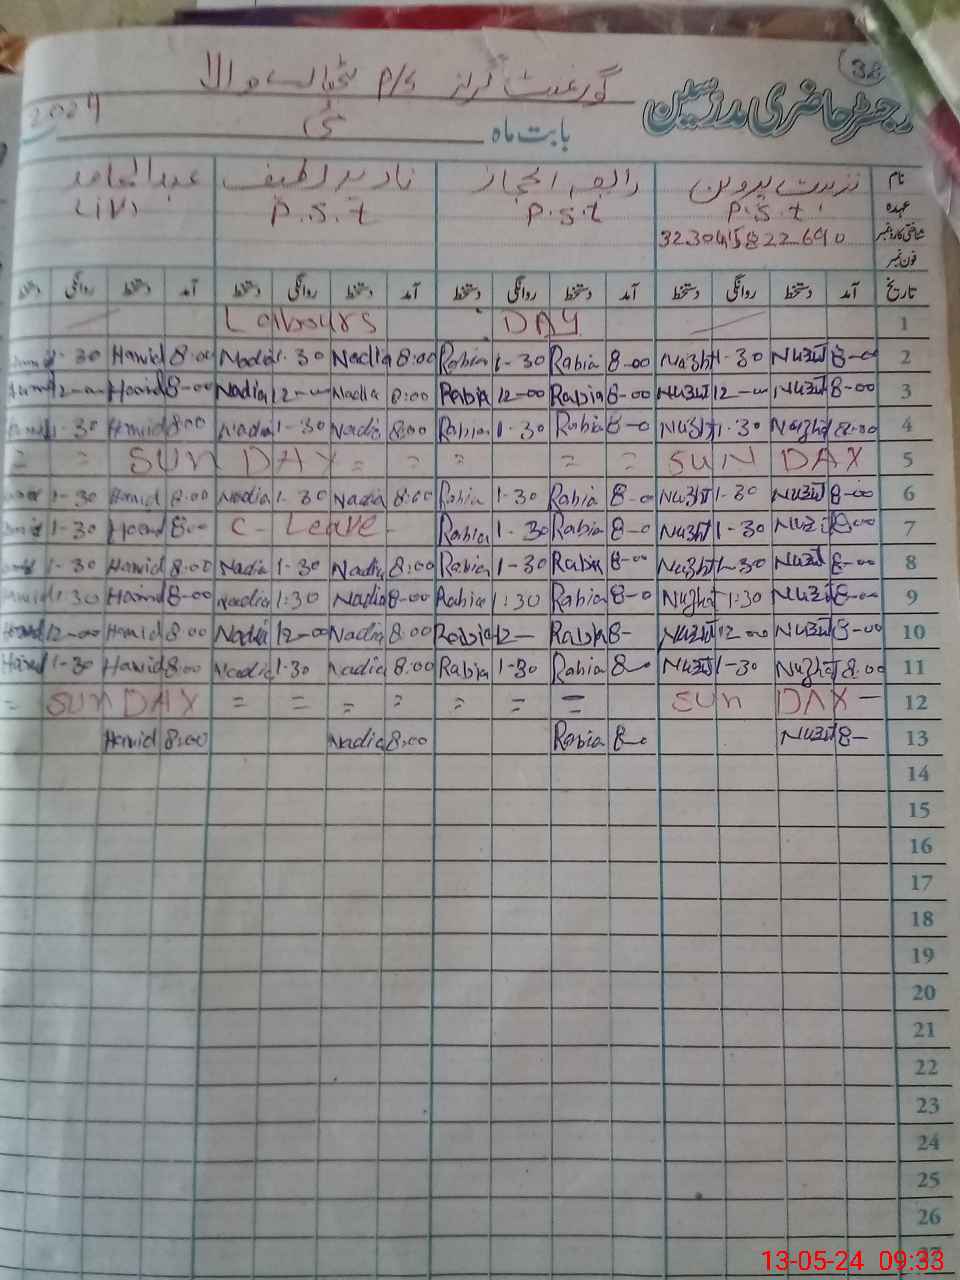 38
رجسٹر حاضری مدرسین
گورنمنٹ گرلز P/S والا
بابت ماہ مئی 2024
نام نزہت پروین رابعہ اعجاز نادیہ لطیف عبدالحامد
عہدہ P.S.t P.S.t P.S.t
شناختی کارڈ نمبر
فون نمبر
تاریخ آمد دستخط روانگی دستخط آمد دستخط روانگی دستخط آمد دستخط روانگی دستخط آمد دستخط روانگی دستخط
Labours DAY 1
1-30 Hamid 8:00 Nadia 1.30 Nadia 8:00 Rabia 1-30 Rabia 8-00 Nuzht 1-30 Nuzht 8-00 2
12-00 Hamid 8-00 Nadia 12-00 Nadia 8:00 Rabia 12-00 Rabia 8-00 Nuzht 12-00 Nuzht 8-00 3
1-30 Hamid 8:00 Nadia 1-30 Nadia 8:00 Rabia 1-30 Rabia 8-0 Nuzht 1-30 Nuzhat 8:00 4
= = SUN DAY = = = = = SUN DAY 5
1-30 Hamid 8:00 Nadia 1-30 Nadia 8:00 Rabia 1-30 Rabia 8-0 Nuzht 1-30 Nuzht 8-00 6
1-30 Hamid 8:00 C- Leave - Rabia 1-30 Rabia 8-0 Nuzht 1-30 Nuzht 8:00 7
1-30 Hamid 8:00 Nadia 1-30 Nadia 8:00 Rabia 1-30 Rabia 8-00 Nuzht 1-30 Nuzht 8-00 8
Hamid 1:30 Hamid 8-00 Nadia 1:30 Nadia 8-00 Rabia 1:30 Rabia 8-0 Nuzhat 1-30 Nuzht 8-00 9
Hamid 12-00 Hamid 8:00 Nadia 12-00 Nadia 8:00 Rabia 12- Rabia 8- Nuzht 12-00 Nuzht 8-00 10
Hamid 1-30 Hamid 8:00 Nadia 1-30 Nadia 8:00 Rabia 1-30 Rabia 8-0 Nuzht 1-30 Nuzhat 8:00 11
= SUN DAY = = = = = = = SUN DAY - 12
Hamid 8:00 Nadia 8:00 Rabia 8-0 Nuzht 8- 13
14
15
16
17
18
19
20
21
22
23
24
25
26
13-05-24 09:33